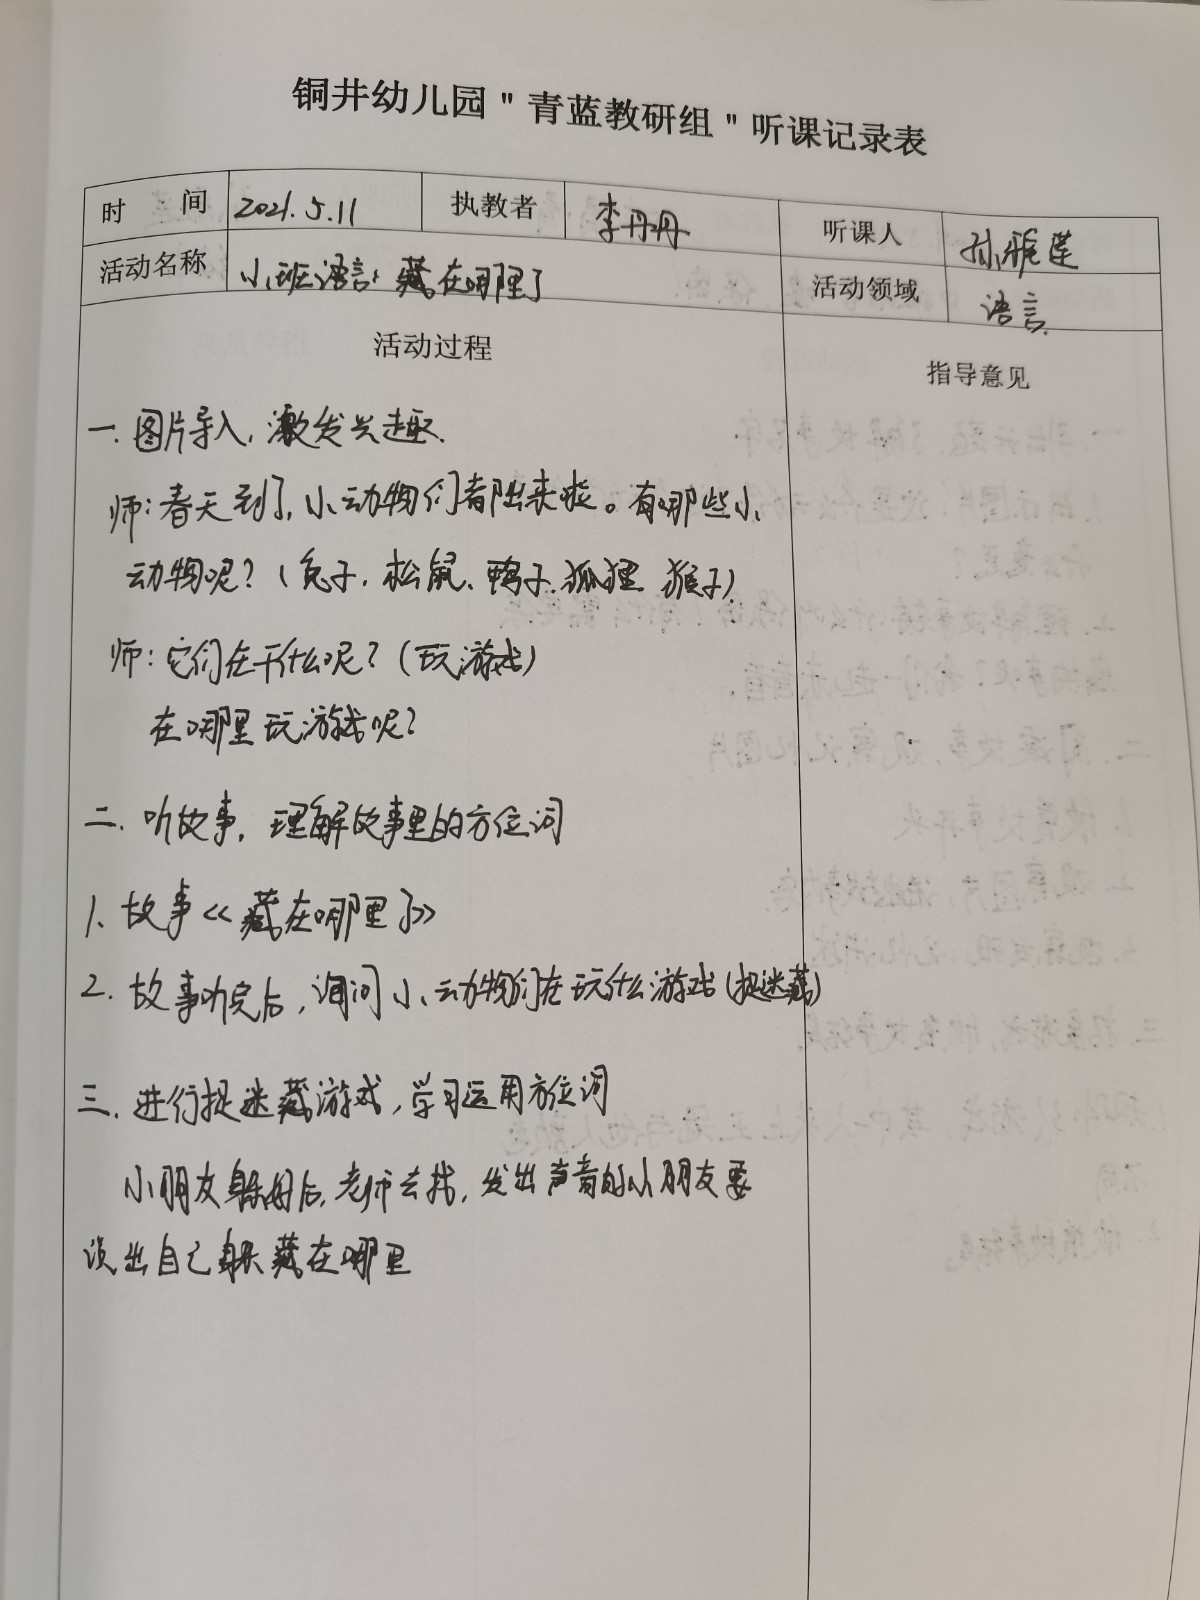 铜井幼儿园"青蓝教研组"听课记录表
时 间 2021.5.11 执教者 李丹丹 听课人 孙雅莲
活动名称 小班语言：藏在哪里了 活动领域 语言
活动过程 指导意见
一.图片导入,激发兴趣.
师:春天到了,小动物们都出来啦。有哪些小
动物呢?(兔子.松鼠、鸭子.狐狸 猴子)
师:它们在干什么呢?(玩游戏)
在哪里玩游戏呢?
二.听故事,理解故事里的方位词
1.故事《藏在哪里了》
2.故事听完后,询问小动物们在玩什么游戏(捉迷藏)
三.进行捉迷藏游戏,学习运用方位词
小朋友躲好后,老师去找,发出声音的小朋友要
说出自己躲藏在哪里